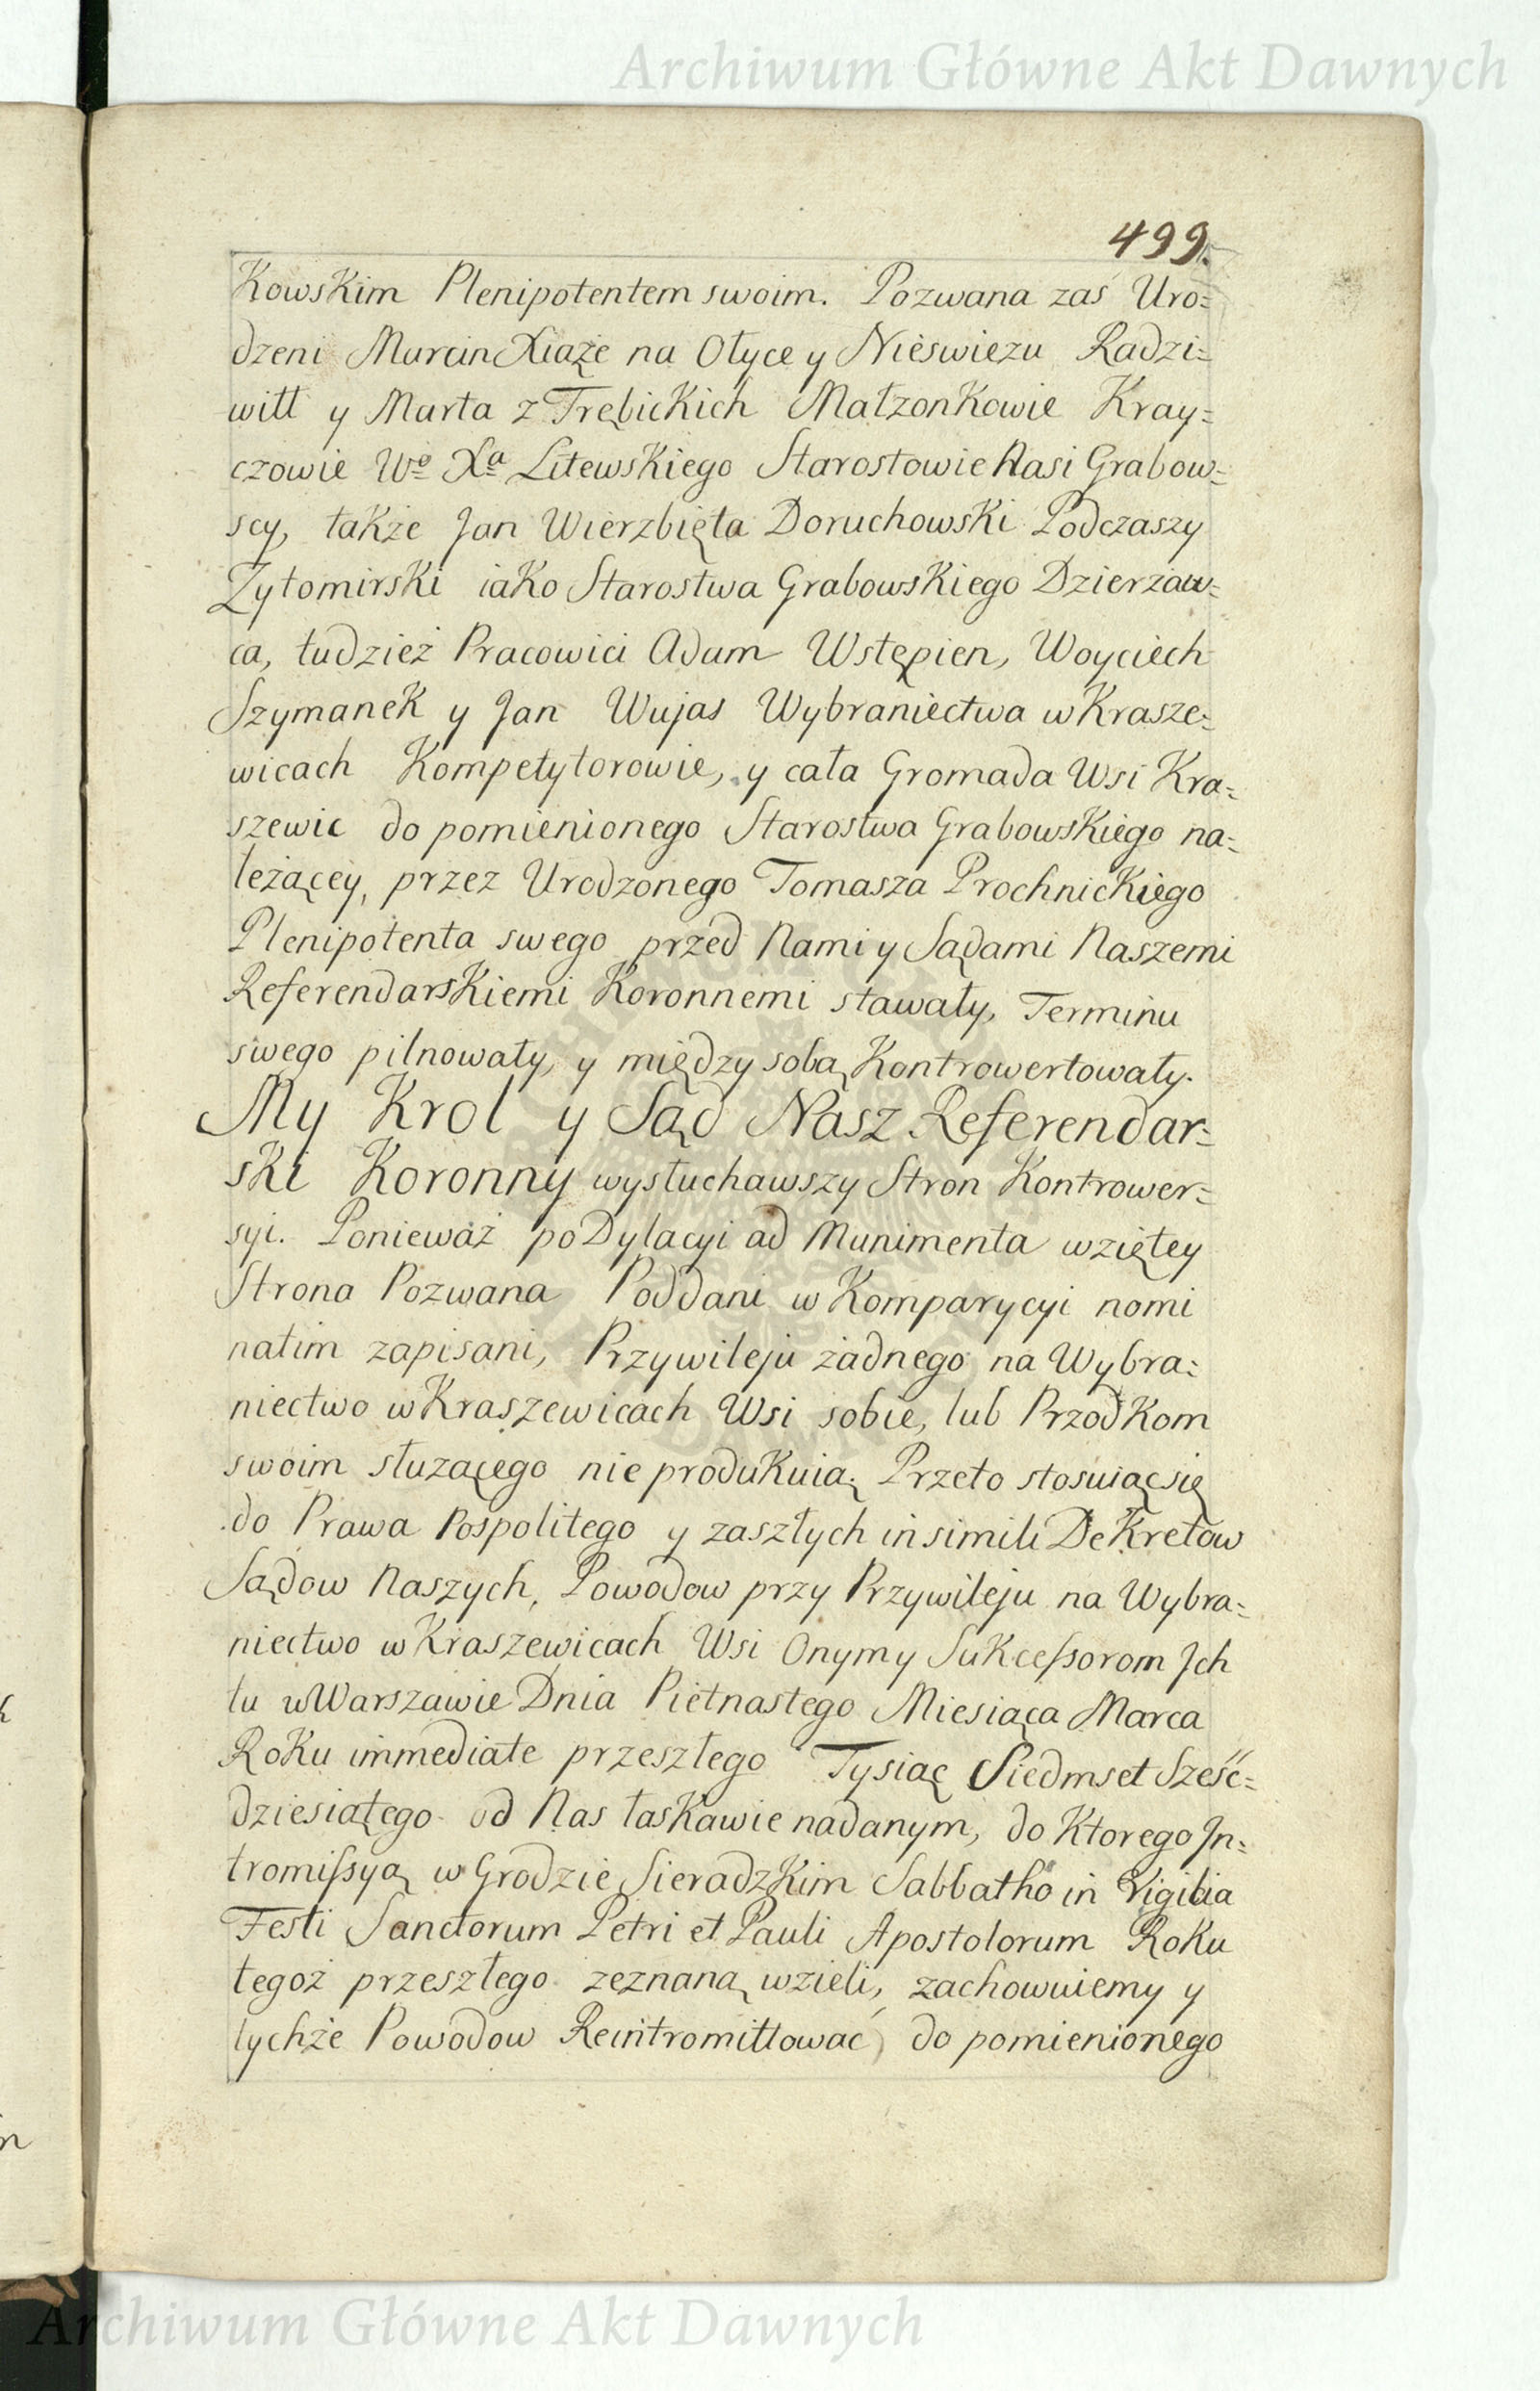 Archiwum Główne Akt Dawnych
499.
Kowskim Plenipotentem swoim. Pozwana zaś Uro=
dzeni Marcin Xiąże na Ołyce y Nieświezu Radzi=
wiłł y Marta z Trębickich Małzonkowie Kray=
czowie Wo Xa Litewskiego Starostowie Nasi Grabow=
scy, także Jan Wierzbięta Doruchowski Podczaszy
Zytomirski iako Starostwa Grabowskiego Dzierzaw=
ca, tudzież Pracowici Adam Wstępien, Woyciech
Szymanek y Jan Wujas Wybraniectwa w Krasze=
wicach Kompetytorowie, y cała Gromada Wsi Kra=
szewic do pomienionego Starostwa Grabowskiego na=
leżącey, przez Urodzonego Tomasza Prochnickiego
Plenipotenta swego przed Nami y Sądami Naszemi
Referendarskiemi Koronnemi stawały, Terminu
swego pilnowały, y między sobą Kontrowertowały.
My Krol y Sąd Nasz Referendar=
ski Koronny wysłuchawszy Stron Kontrower=
syi. Ponieważ po Dylacyi ad Munimenta wziętey
Strona Pozwana Poddani w Komparycyi nomi
natim zapisani, Przywileju żadnego na Wybra=
niectwo w Kraszewicach Wsi sobie, lub Przodkom
swoim słuzącego nie produkuią. Przeto stosuiąc się
do Prawa Pospolitego y zaszłych in simili Dekretow
Sądow Naszych, Powodow przy Przywileju na Wybra=
niectwo w Kraszewicach Wsi Onym y Sukcessorom Jch
tu w Warszawie Dnia Piętnastego Miesiąca Marca
Roku immediate przeszłego Tysiąc Siedmset Sześć=
dziesiątego od Nas łaskawie nadanym, do Ktorego Jn=
tromissyą w Grodzie Sieradzkim Sabbatho in Vigilia
Festi Sanctorum Petri et Pauli Apostolorum Roku
tegoż przeszłego zeznaną wzieli, zachowuiemy y
tychże Powodow Reintromittować do pomienionego
Archiwum Główne Akt Dawnych